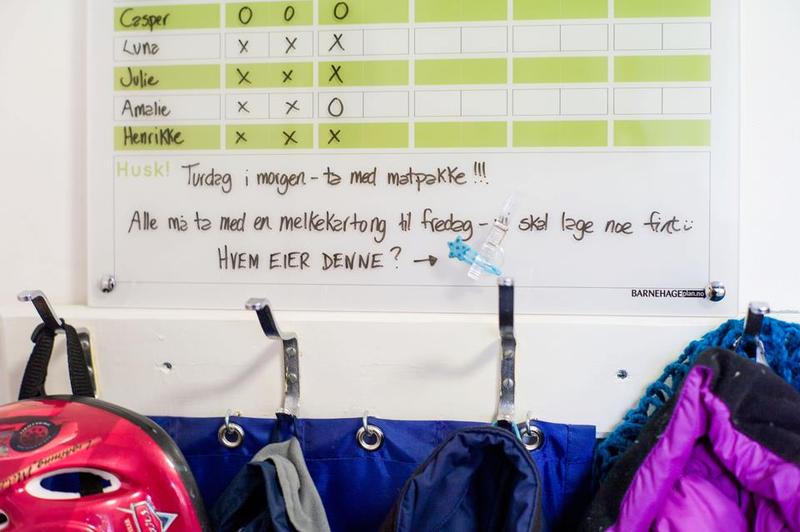 Casper O O O
Luna X X X
Julie X X X
Amalie X X O
Henrikke X X X
Husk! Turdag i morgen - ta med matpakke !!!
Alle må ta med en melkekartong til fredag - skal lage noe fint :)
HVEM EIER DENNE? →
BARNEHAGEplan.no